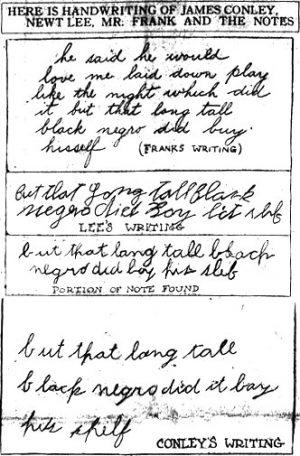 HERE IS HANDWRITING OF JAMES CONLEY,
NEWT LEE, MR. FRANK AND THE NOTES
he said he would
love me laid down play
like the night witch did
it but that long tall
black negro did buy
hisself (FRANKS WRITING)
but that long tall black
negro did boy his slef
LEE'S WRITING
but that long tall black
negro did boy his slef
PORTION OF NOTE FOUND
but that long tall
black negro did it bay
his shelf
CONLEY'S WRITING